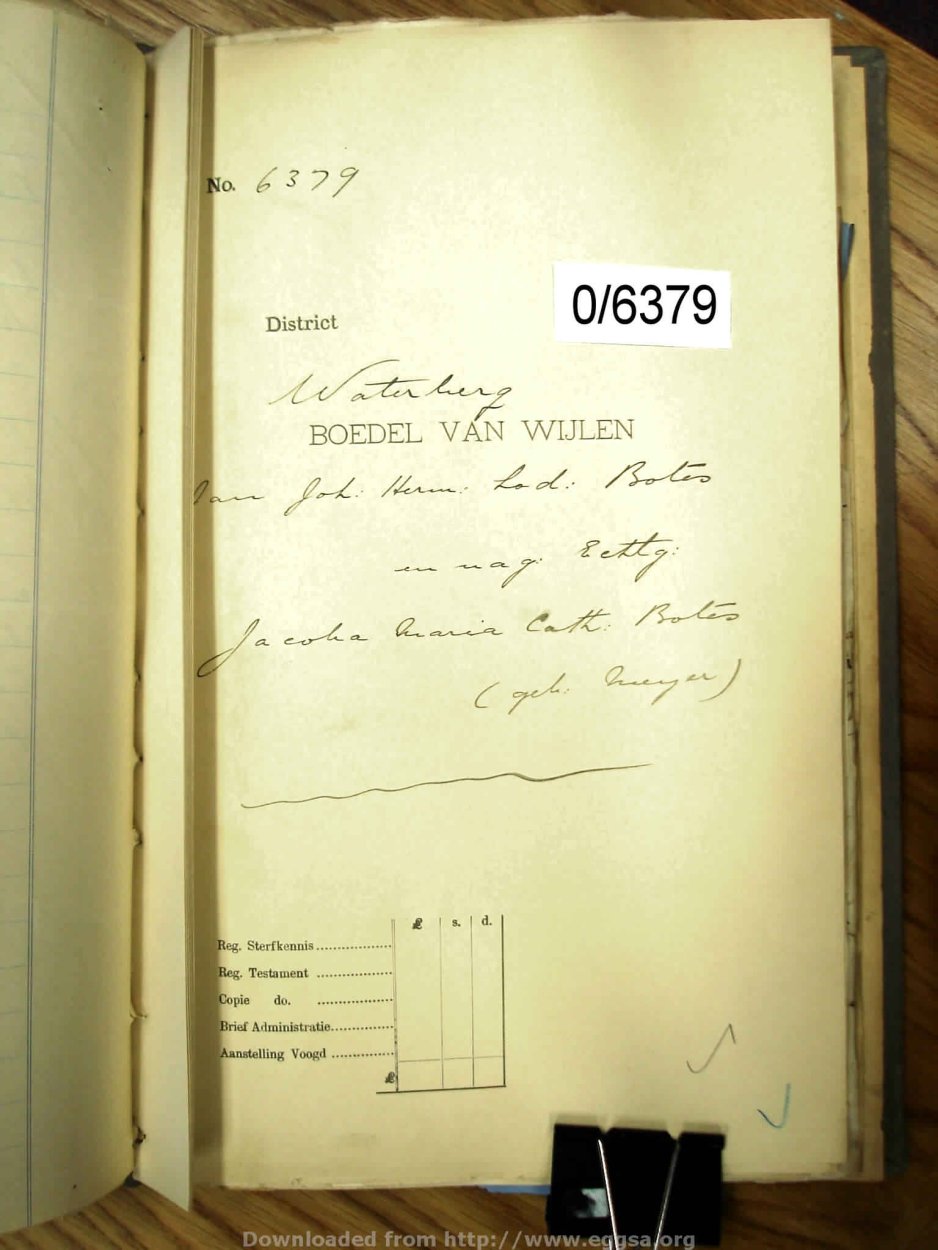 No. 6379
0/6379
District
Waterberg
BOEDEL VAN WIJLEN
Jan Joh: Herm: Lod: Botes
en nag: Echtg:
Jacoba Maria Cath: Botes
(geb: Meyer)
£ s. d.
Reg. Sterfkennis
Reg. Testament
Copie do.
Brief Administratie
Aanstelling Voogd
£
Downloaded from http://www.eggsa.org